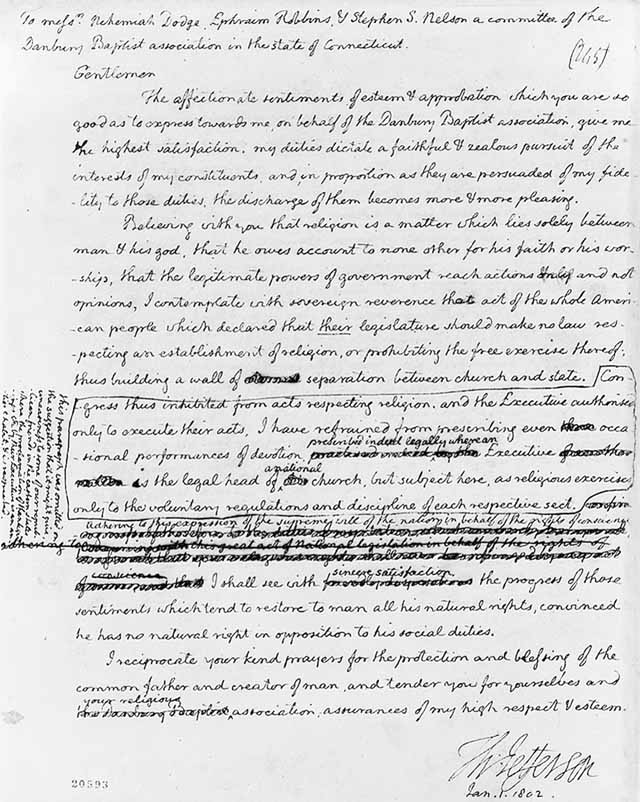 To messrs. Nehemiah Dodge, Ephraim Robbins, & Stephen S. Nelson a committee of the
Danbury Baptist association in the state of Connecticut.
(265)
Gentlemen
The affectionate sentiments of esteem & approbation which you are so
good as to express towards me, on behalf of the Danbury Baptist association, give me
the highest satisfaction. my duties dictate a faithful & zealous pursuit of the
interests of my constituents, and, in proportion as they are persuaded of my fide-
-lity to those duties, the discharge of them becomes more & more pleasing.
Believing with you that religion is a matter which lies solely between
man & his god, that he owes account to none other for his faith or his wor-
-ship, that the legitimate powers of government reach actions only and not
opinions, I contemplate with sovereign reverence that act of the whole Ameri-
-can people which declared that their legislature should make no law res-
-pecting an establishment of religion, or prohibiting the free exercise thereof;
thus building a wall of eternal separation between church and state. [Con-
-gress thus inhibited from acts respecting religion, and the Executive authorised
only to execute their acts, I have refrained from prescribing even those occa
-sional performances of devotion,
prescribed indeed legally where an
Executive
is the legal head of
a national
church, but subject here, as religious exercises
only to the voluntary regulations and discipline of each respective sect.
Adhering to this expression of the supreme will of the nation in behalf of the rights of conscience
I shall see with
sincere satisfaction
the progress of those
sentiments which tend to restore to man all his natural rights, convinced
he has no natural right in opposition to his social duties.
I reciprocate your kind prayers for the protection and blessing of the
common father and creator of man, and tender you for yourselves and
your religious
the Danbury Baptist association, assurances of my high respect & esteem.
Th: Jefferson
Jan. 1. 1802.
20593
this paragraph was omitted on
the suggestion that it might give